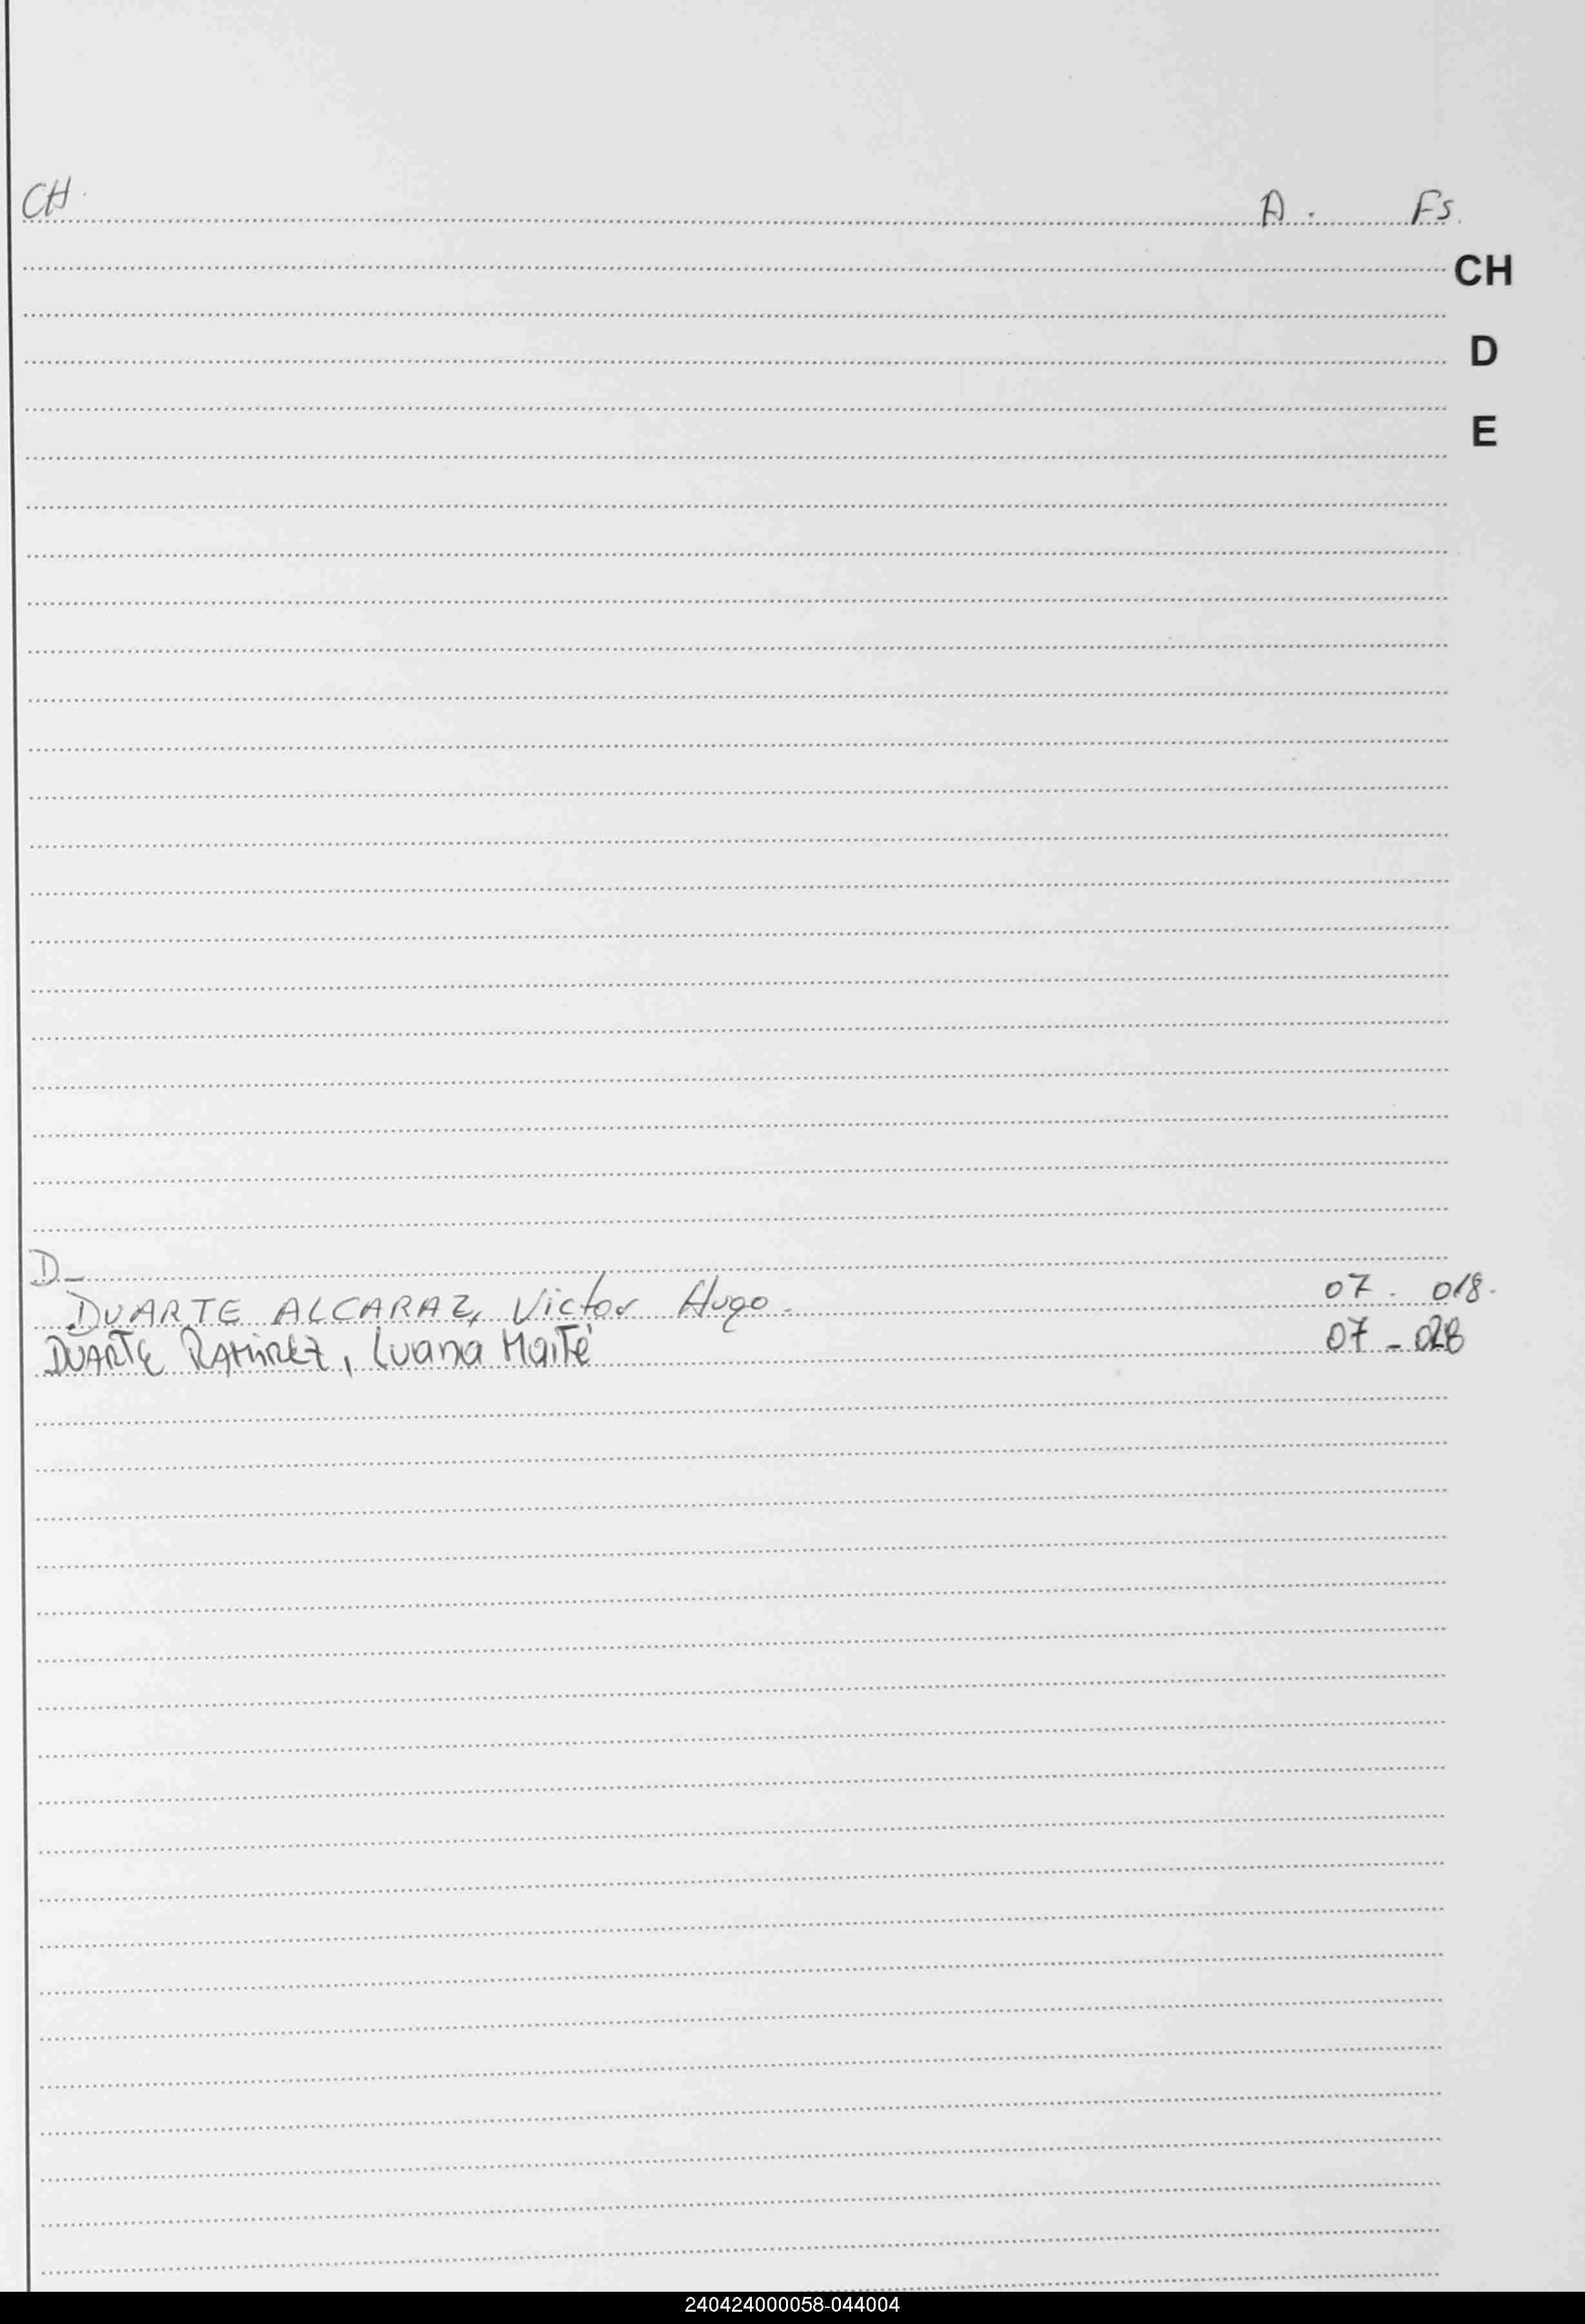 CH. A. Fs.
CH
D
E
D.-
DUARTE ALCARAZ, Victor Hugo.- 07. 018.
DUARTE RAMIREZ, Luana Maité 07 - 028
240424000058-044004